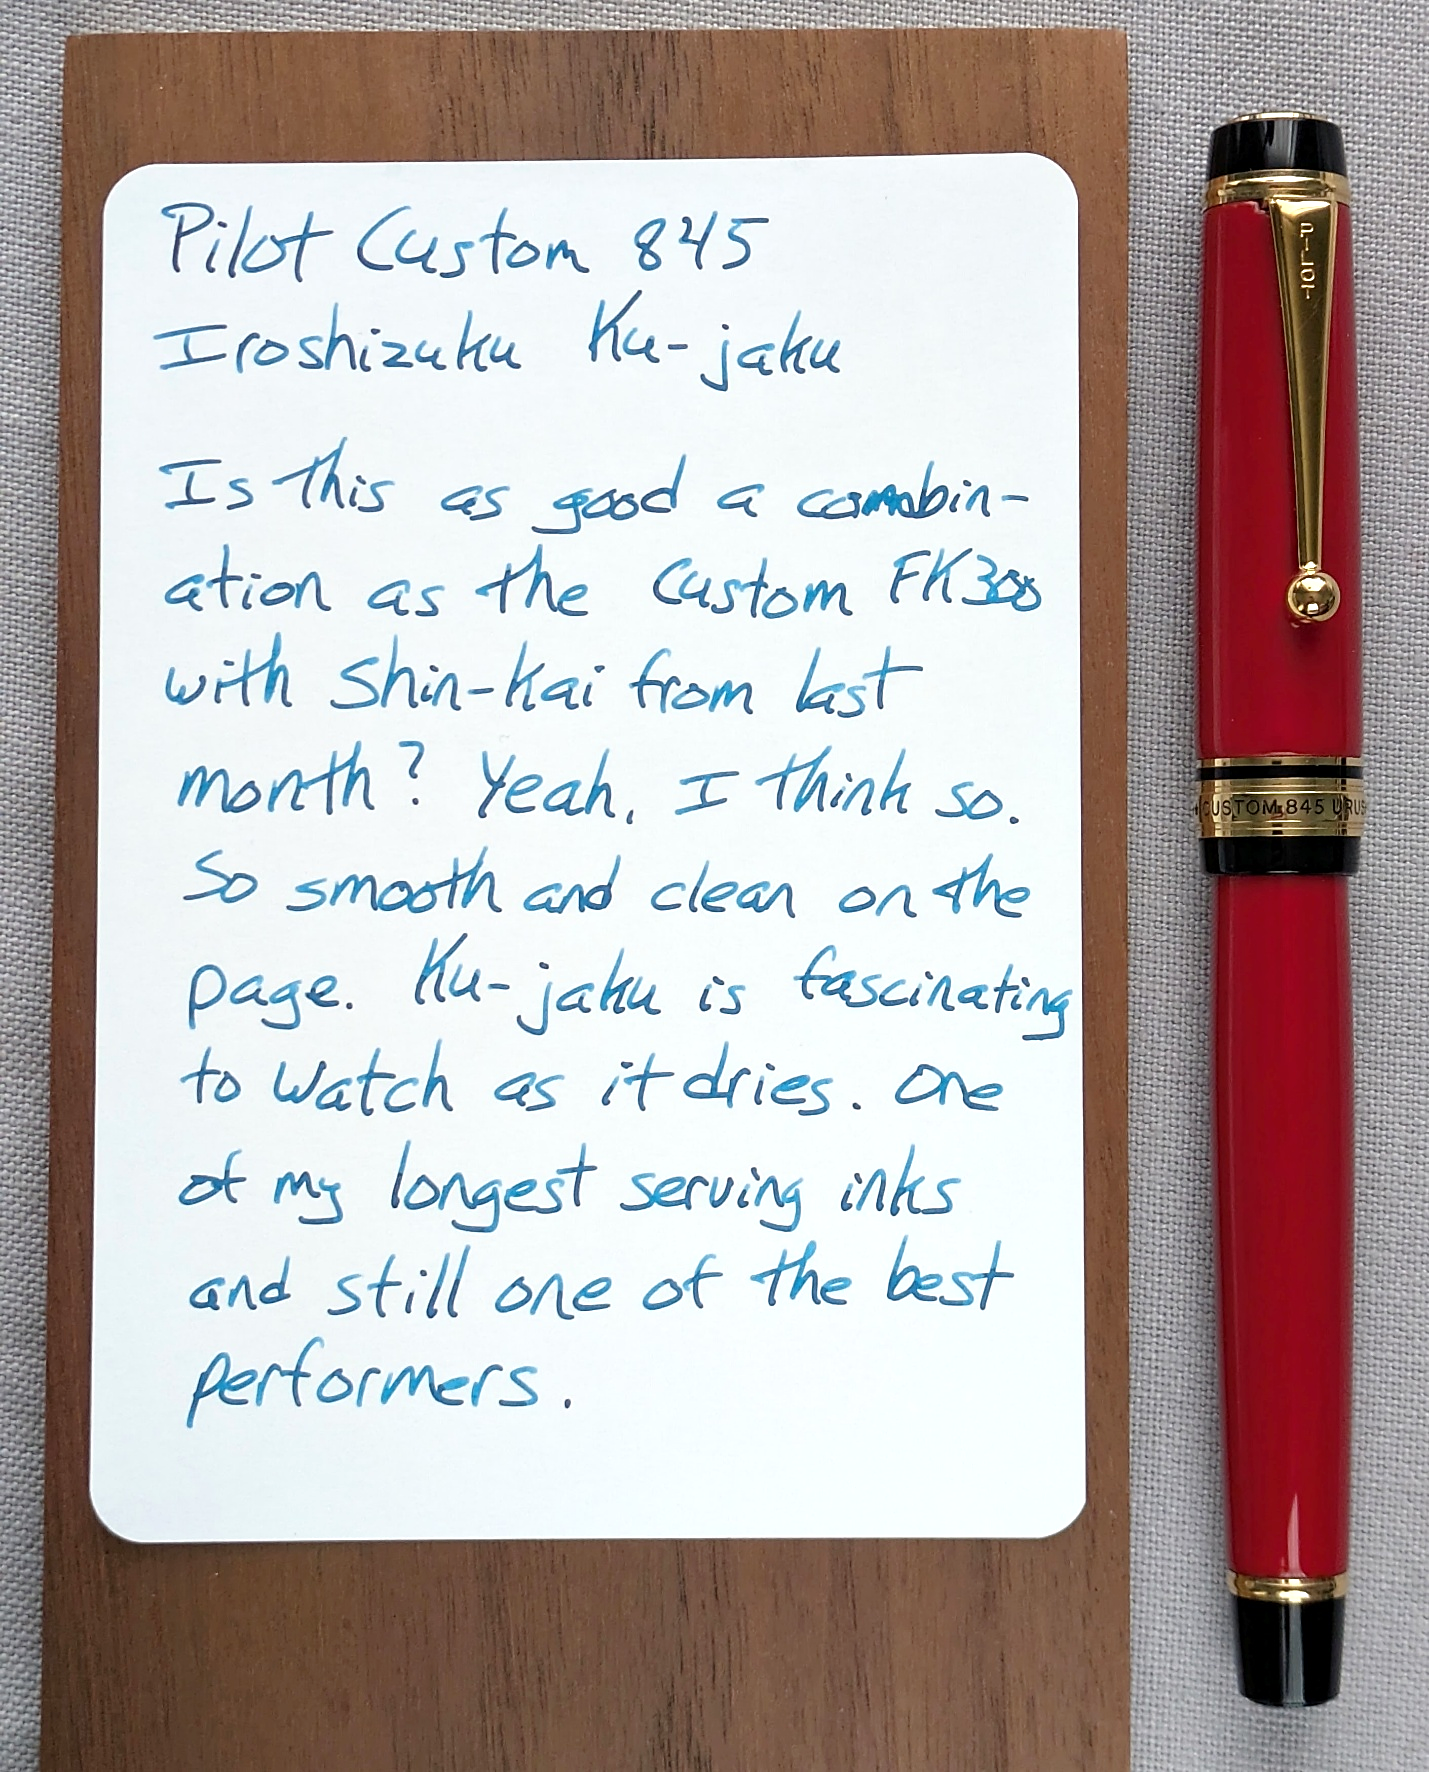 Pilot Custom 845
Iroshizuku Ku-jaku
Is this as good a combin-
ation as the Custom FK300
with Shin-Kai from last
month? Yeah, I think so.
So smooth and clean on the
page. Ku-jaku is fascinating
to watch as it dries. One
of my longest serving inks
and still one of the best
performers.
PILOT
CUSTOM 845 URUS